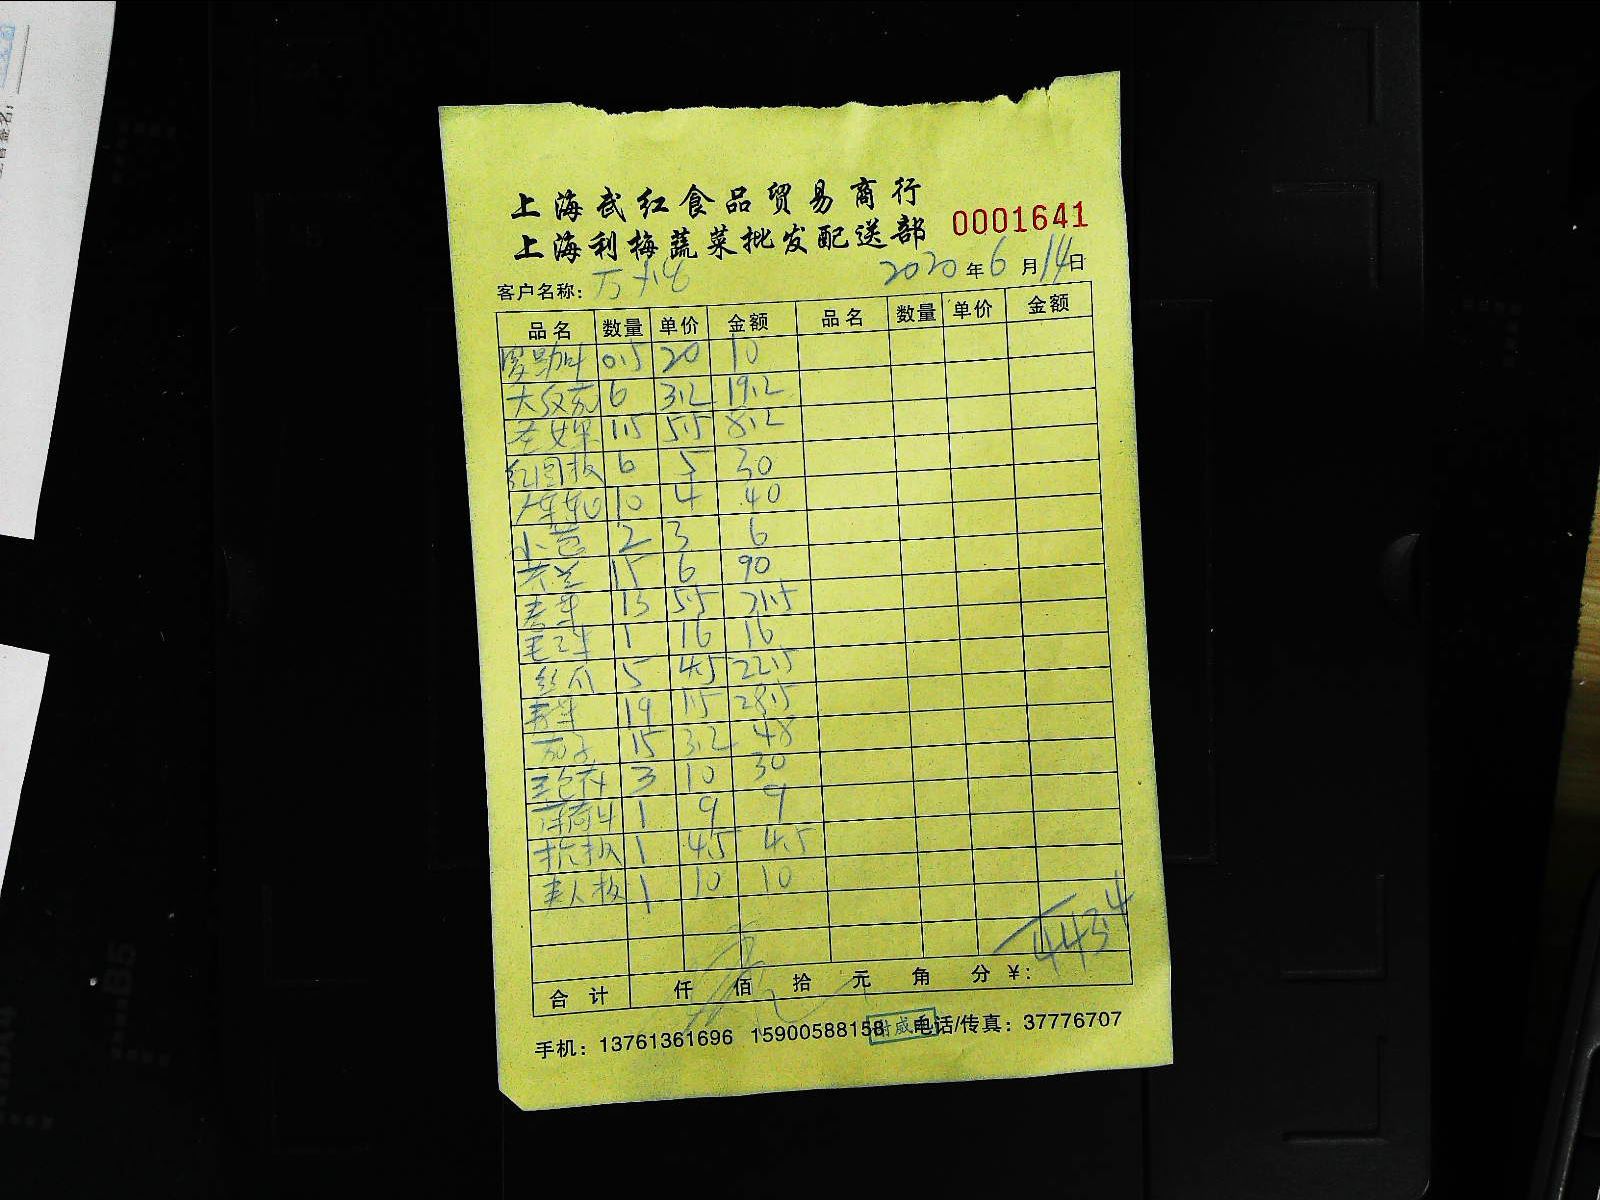 上海武红食品贸易商行
上海利梅蔬菜批发配送部 0001641
客户名称: 2020年6月14日
品名 数量 单价 金额 品名 数量 单价 金额
罗勒叶 0.5 20 10
大红茄 6 3.2 19.2
圣女果 1.5 5.5 8.2
红圆椒 6 5 30
10 4 40
小葱 2 3 6
15 6 90
13 5.5 71.5
毛豆米 1 16 16
丝瓜 5 4.5 22.5
青菜 19 1.5 28.5
茄子 15 3.2 48
3 10 30
薄荷叶 1 9 9
杭椒 1 4.5 4.5
美人椒 1 10 10
443.4
合计 仟 佰 拾 元 角 分 ¥:
手机: 13761361696 15900588158 电话/传真: 37776707